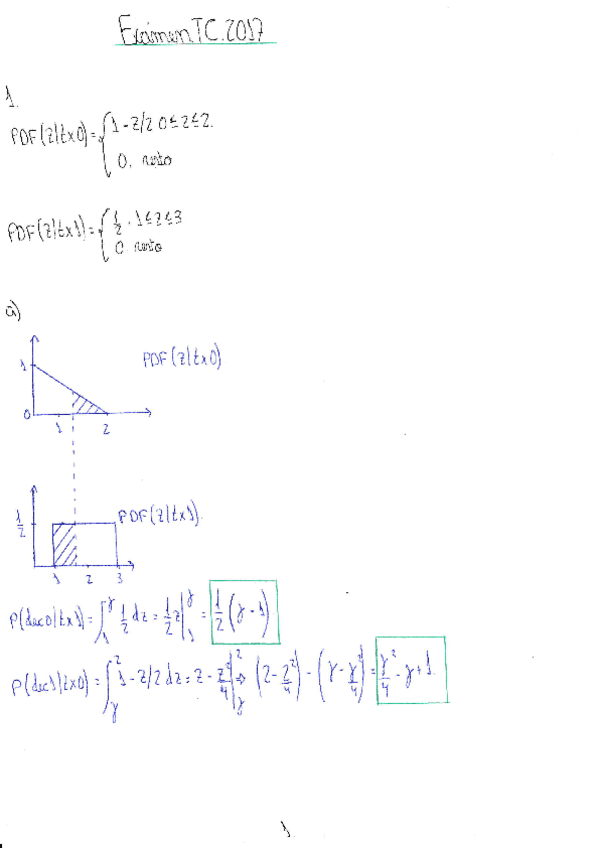 Exámen TC.2017
1.
PDF(z|tx0)= { 1-z/2 0≤z≤2.
0, resto
PDF(z|tx1)= { 1/2 . 1≤z≤3
0 resto
a)
1
PDF(z|tx0)
0
1 2
1/2
PDF(z|tx1)
1 2 3
P(dec0|tx1)= ∫₁^γ 1/2 dz = 1/2 z |₁^γ = 1/2 (γ-1)
P(dec1|tx0)= ∫_γ^2 1-z/2 dz = z - z²/4 |_γ^2 ⇒ (2 - 2²/4) - (γ - γ²/4) = γ²/4 - γ + 1.
1